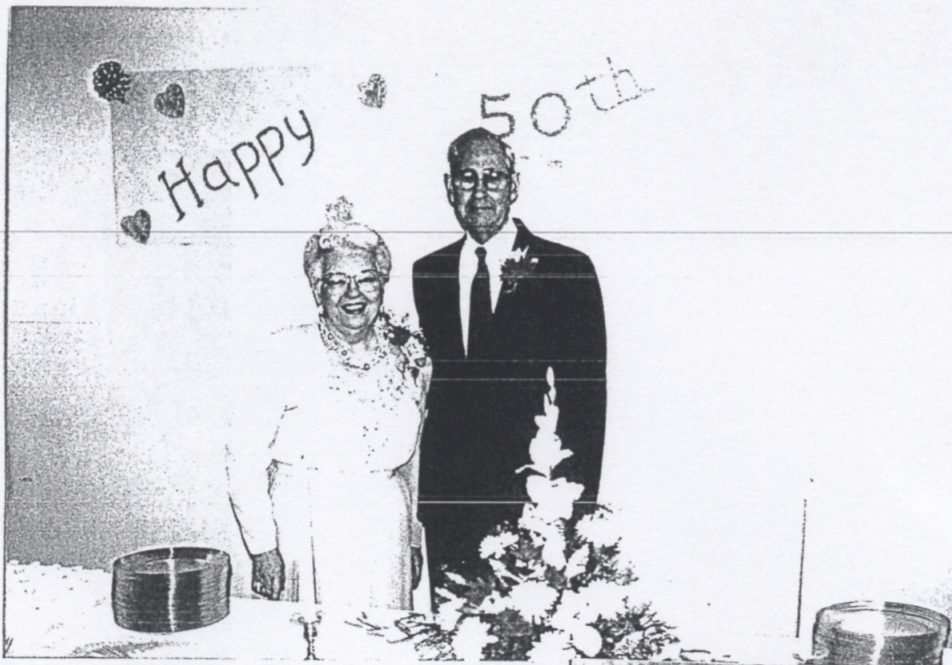 Happy 50th